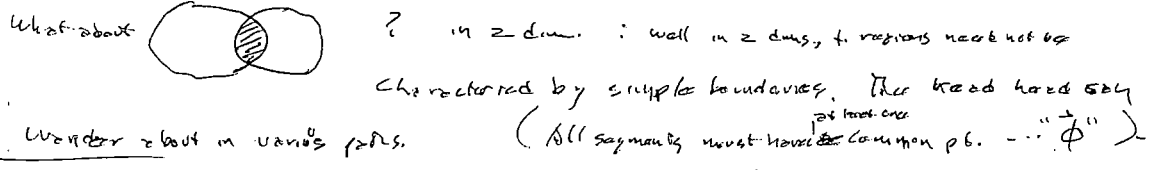 What about ? in 2 dim. : well in 2 dims, t. regions need not be
characterized by simple boundaries. The head could say
wander about in various paths. (All segments must have at least one common pt. --- "ϕ")